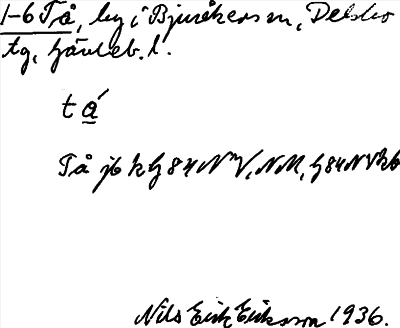 1-6 Tå, by i Bjuråkers sn, Delsbo
tg, Gävleb. l.
t á̲
Tå jb k G 84 NV, NM, G 84 NV kb
Nils Erik Eriksson 1936.